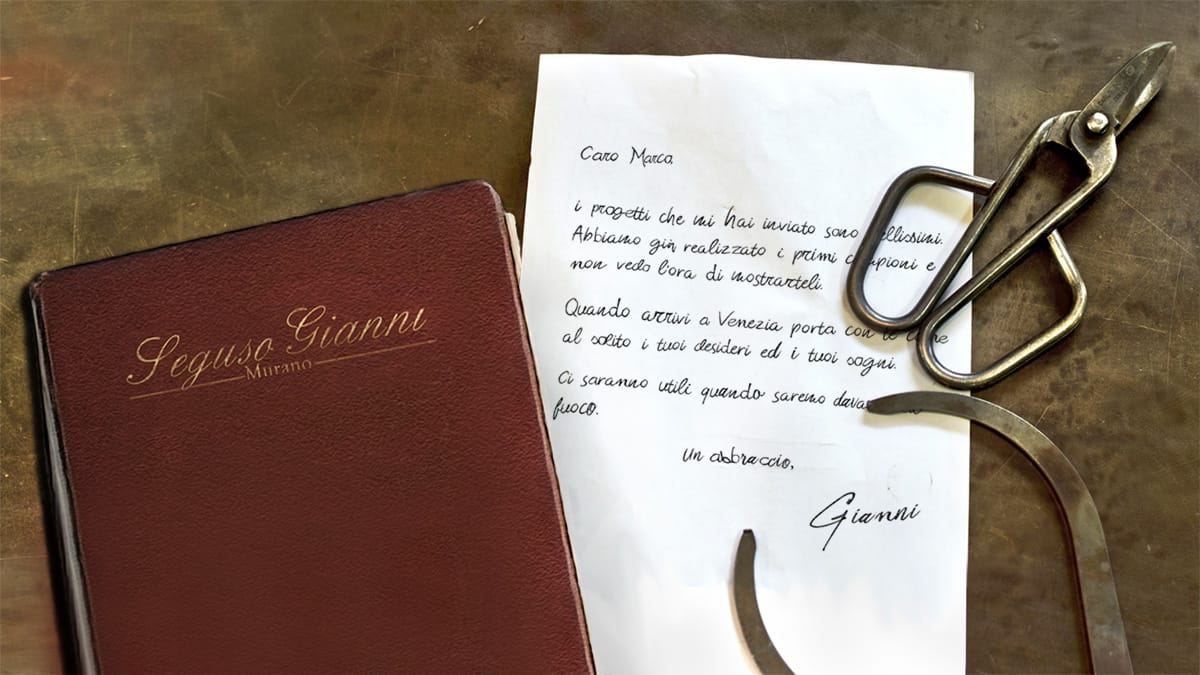 Seguso Gianni
Murano
Caro Marca
i progetti che mi hai inviato sono
Abbiamo già realizzato i primi e
non vedo l'ora di mostrarteli.
Quando arrivi a Venezia porta con
al solito i tuoi desideri ed i tuoi sogni.
Ci saranno utili quando saremo
fuoco.
un abbraccio,
Gianni